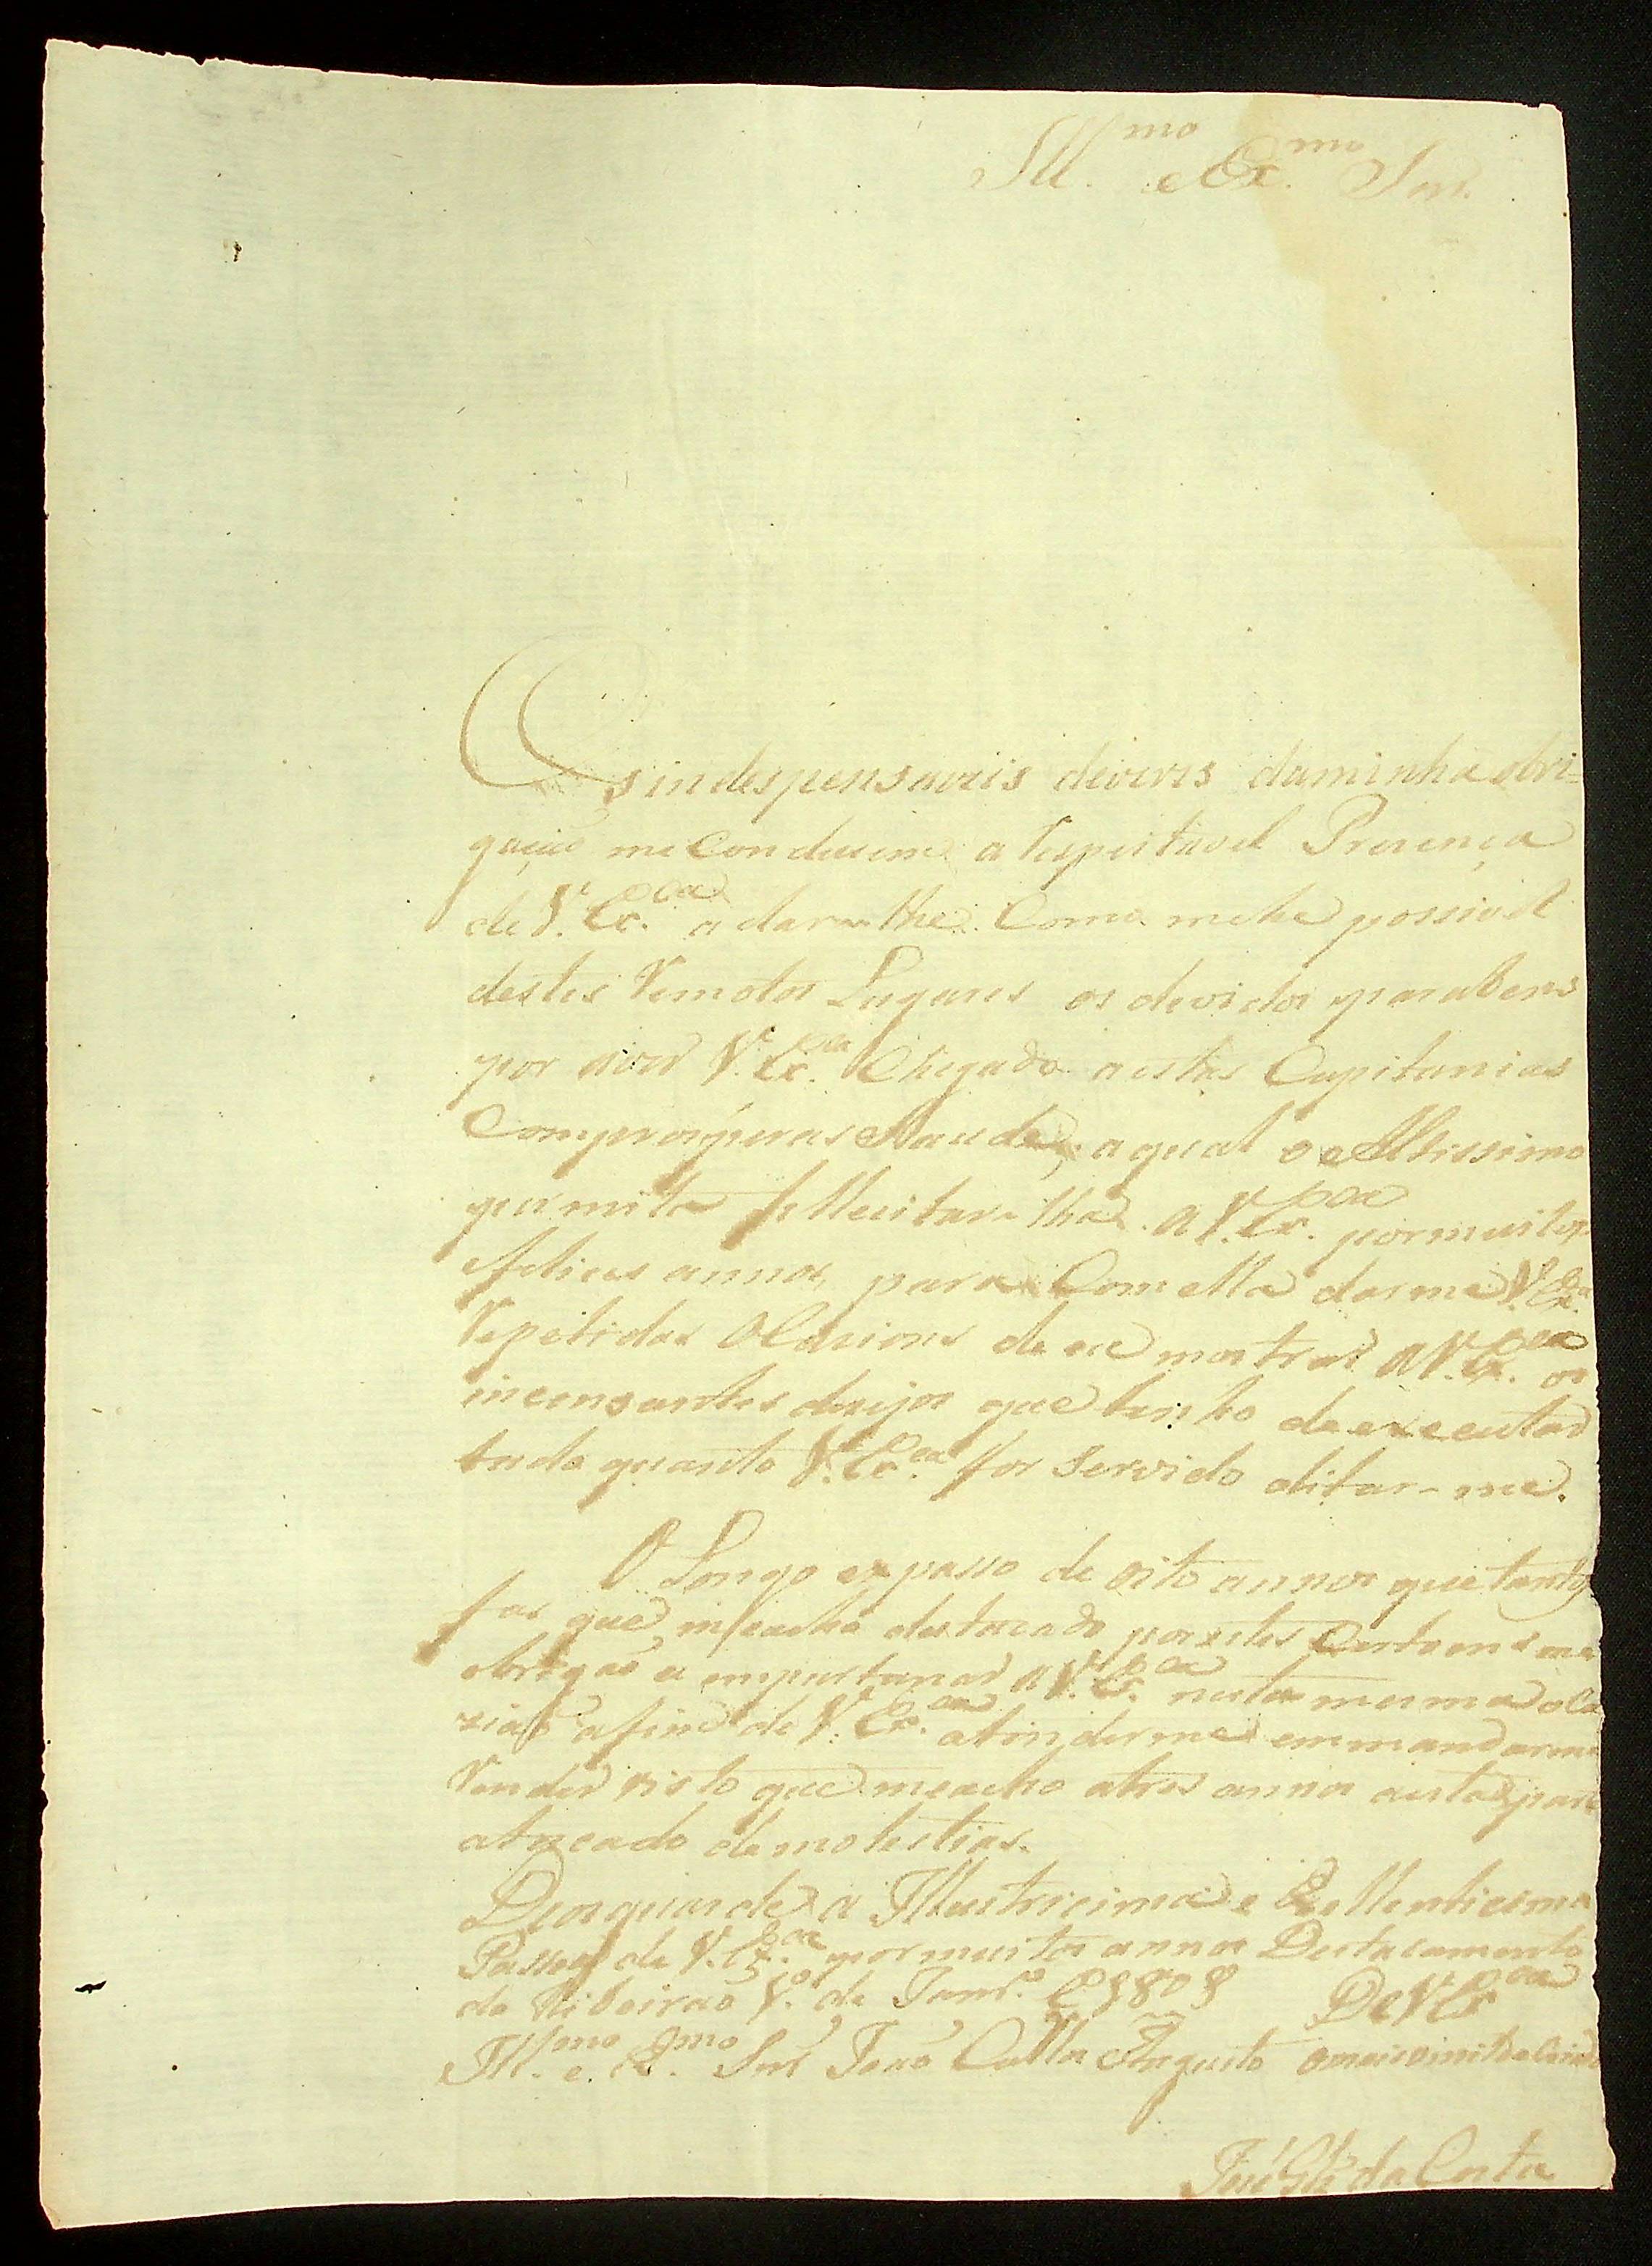 Ill.mo e Ex.mo Snr.
Os indespensaveis deveres daminha obri=
gação me Conduzem a Respeitavel Presença
de V. Ex.cia a dar-lhe Como mehe possivel
destes Remotos Lugares os devidos parabens
por aver V. Ex.cia Chegado a estas Capitanias
Comprosperas Saude, aqual o Altissimo
permita fellecitar-lha a V. Ex.cia pormuitos
felices annos, para Comella darme V. Ex.cia
Repetidas Ocasions de eu mostrar a V. Ex.cia os
incensantes dezejos que tenho de executar
tudo quanto V. Ex.cia for Servido ditar-me.
O Longo espasso de oito annos que tantos
fas que meacho destacado por estes Certoens me
obrigaõ a importunar a V. Ex.cia nesta mesma oca
ziaõ afim de V. Ex.cia atinderme emmandarme
Render visto que meacho atres annos aesta parte
atacado demolestias.
Deos guarde a Illustricima e Excellenticima
Pessoa de V. Ex.cia pormuitos annos Destacamento
do Ribeiraõ 1.º de Janr.º de 1808 De V Ex.cia
Ill.mo e Ex.mo Snr Joaõ Carlos Augusto omais
José da Costa